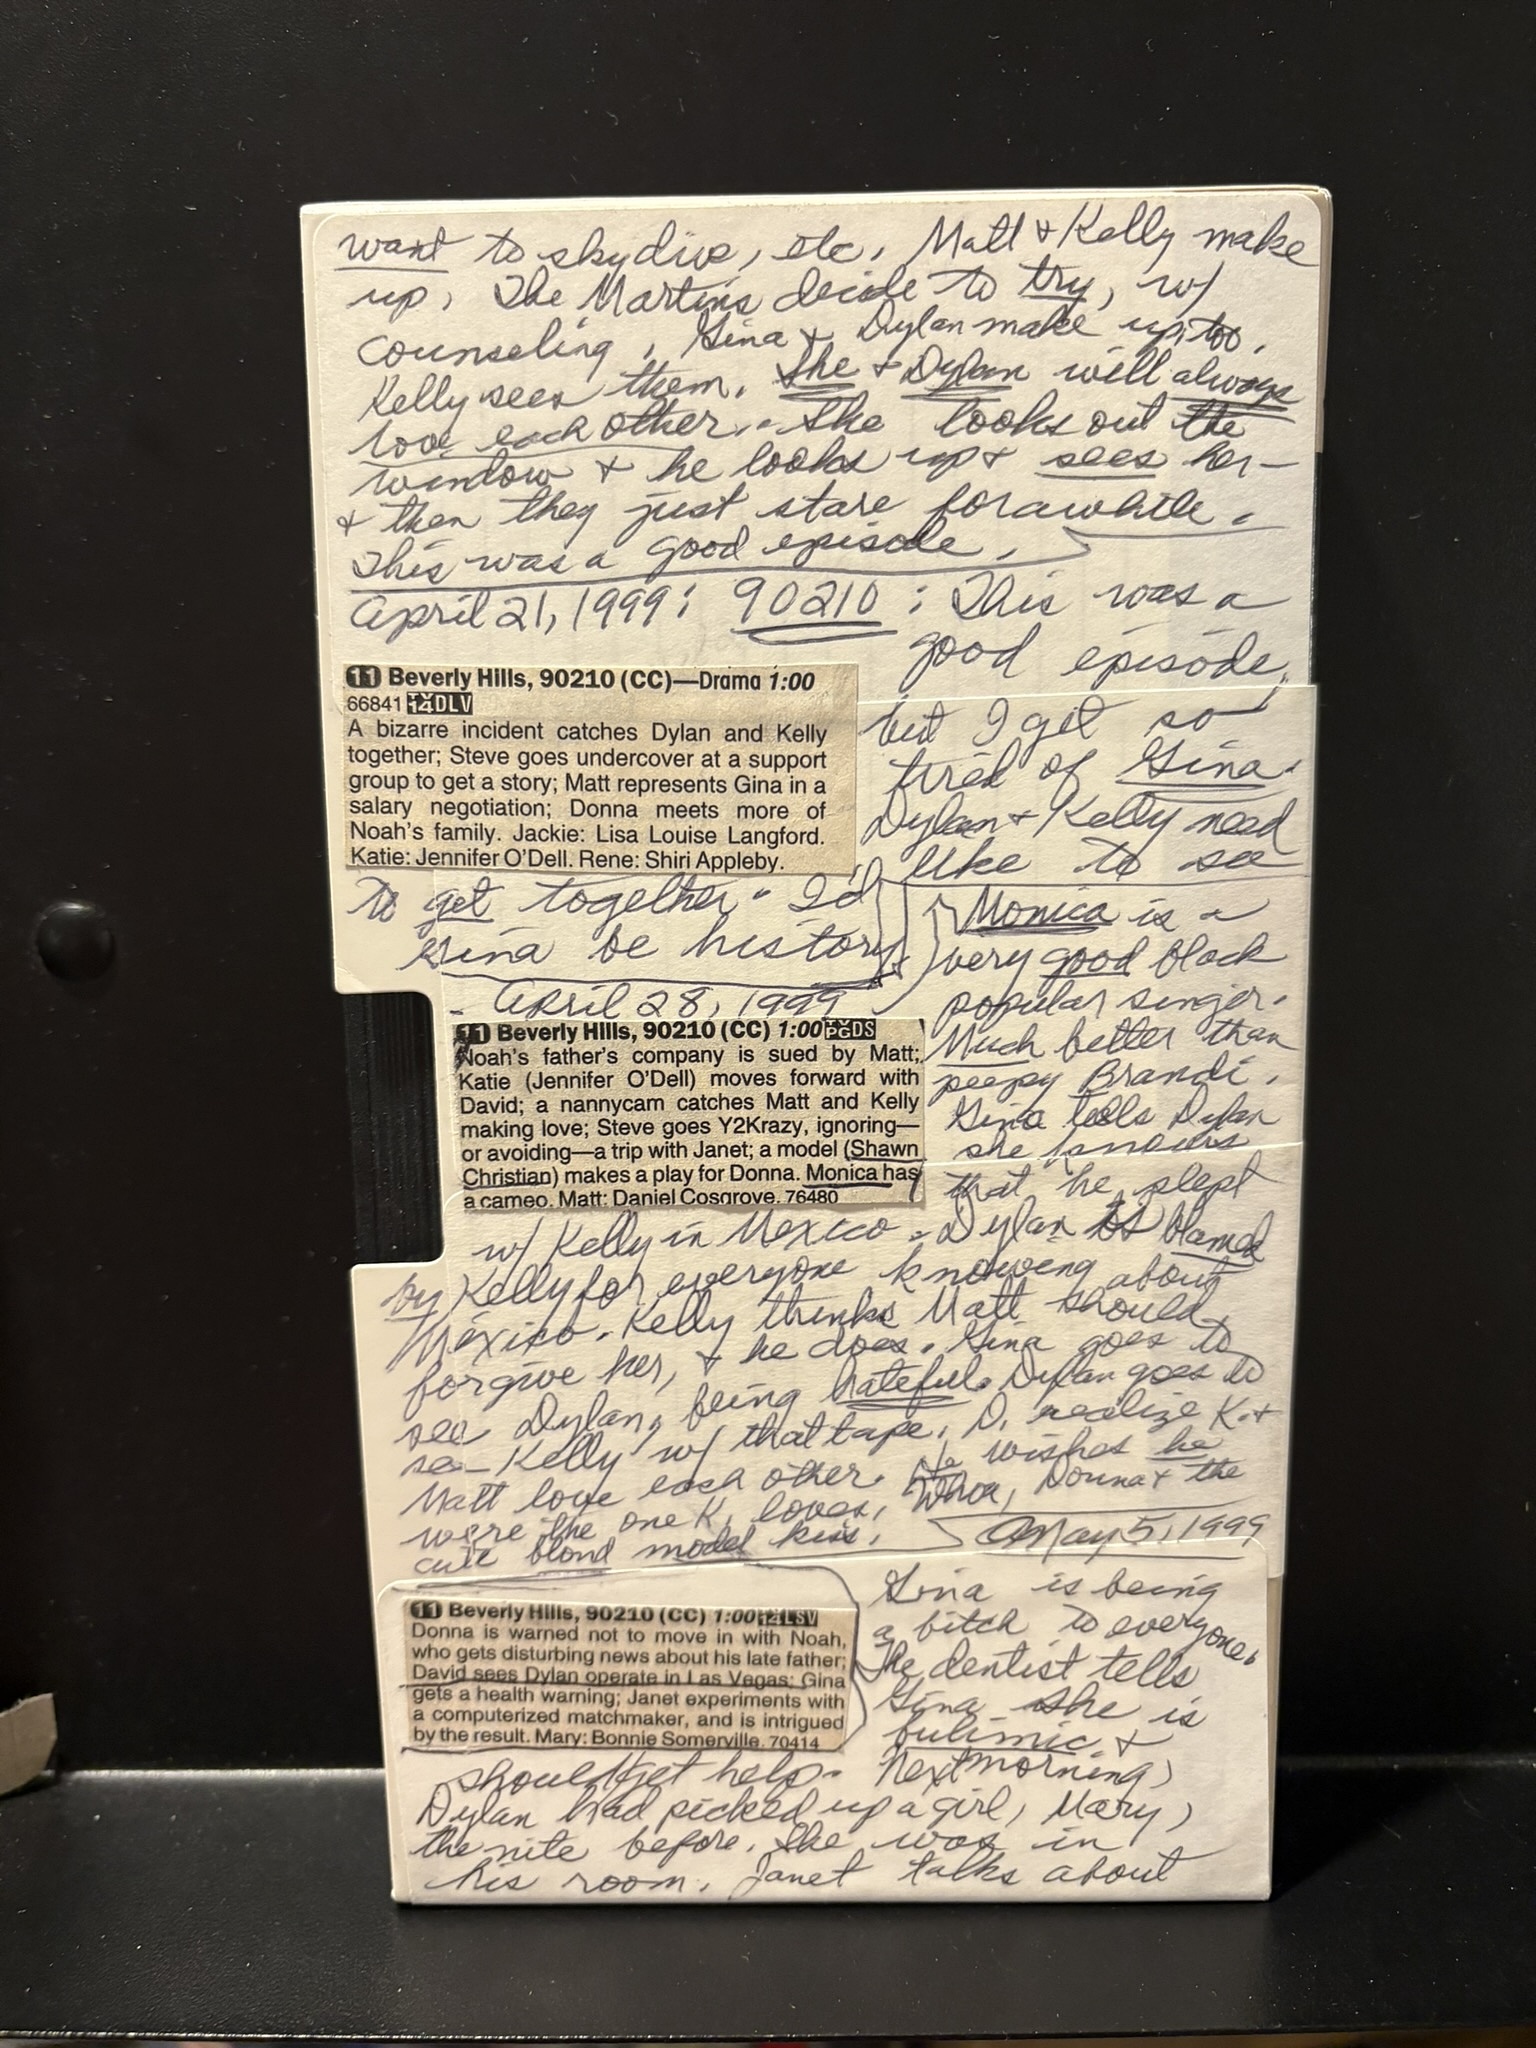 want to skydive, etc. Matt + Kelly make
up. The Martins decide to try, w/
counseling. Gina + Dylan make up, too.
Kelly sees them. She + Dylan will always
love each other. She looks out the
window + he looks up + sees her —
+ then they just stare for awhile.
This was a good episode.
April 21, 1999: 90210: This was a
good episode,
11 Beverly Hills, 90210 (CC)—Drama 1:00
66841 TV14DLV
A bizarre incident catches Dylan and Kelly
together; Steve goes undercover at a support
group to get a story; Matt represents Gina in a
salary negotiation; Donna meets more of
Noah's family. Jackie: Lisa Louise Langford.
Katie: Jennifer O'Dell. Rene: Shiri Appleby.
but I get so
tired of Gina.
Dylan + Kelly need
to get together. I'd
like to see
Gina be history
April 28, 1999
11 Beverly Hills, 90210 (CC) 1:00 TVPGDS
Noah's father's company is sued by Matt;
Katie (Jennifer O'Dell) moves forward with
David; a nannycam catches Matt and Kelly
making love; Steve goes Y2Krazy, ignoring—
or avoiding—a trip with Janet; a model (Shawn
Christian) makes a play for Donna. Monica has
a cameo. Matt: Daniel Cosgrove. 76480
Monica is a
very good black
popular singer.
Much better than
peepy Brandi.
Gina tells Dylan
she knows
that he slept
w/ Kelly in Mexico. Dylan is blamed
by Kelly for everyone knoweng about
Mexico. Kelly thinks Matt should
forgive her, + he does. Gina goes to
see Dylan, being hateful. Dylan goes to
see Kelly w/ that tape. D. realize K. +
Matt love each other. He wishes he
were the one K. loves. Whoa, Donna + the
cute blond model kiss.
May 5, 1999
11 Beverly Hills, 90210 (CC) 1:00 TV14LSV
Donna is warned not to move in with Noah,
who gets disturbing news about his late father;
David sees Dylan operate in Las Vegas; Gina
gets a health warning; Janet experiments with
a computerized matchmaker, and is intrigued
by the result. Mary: Bonnie Somerville. 70414
Gina is being
a bitch to everyone.
The dentist tells
Gina she is
bulimic +
should get help. Next morning,
Dylan had picked up a girl, Mary,
the nite before. She was in
his room. Janet talks about